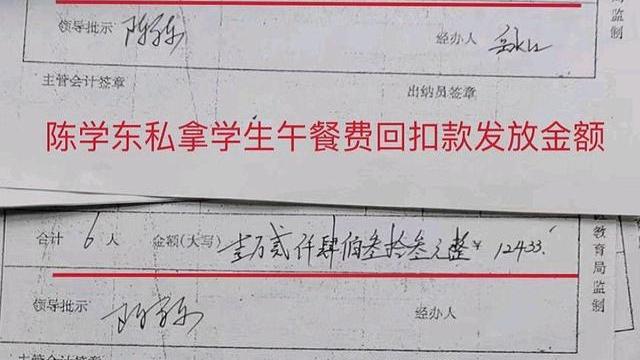 局监制
领导批示 经办人
主管会计签章 出纳员签章
陈学东私拿学生午餐费回扣款发放金额
合计 6 人 金额(大写) 壹万贰仟肆佰叁拾叁元整 ¥ 12433.
教育局监制
领导批示 经办人